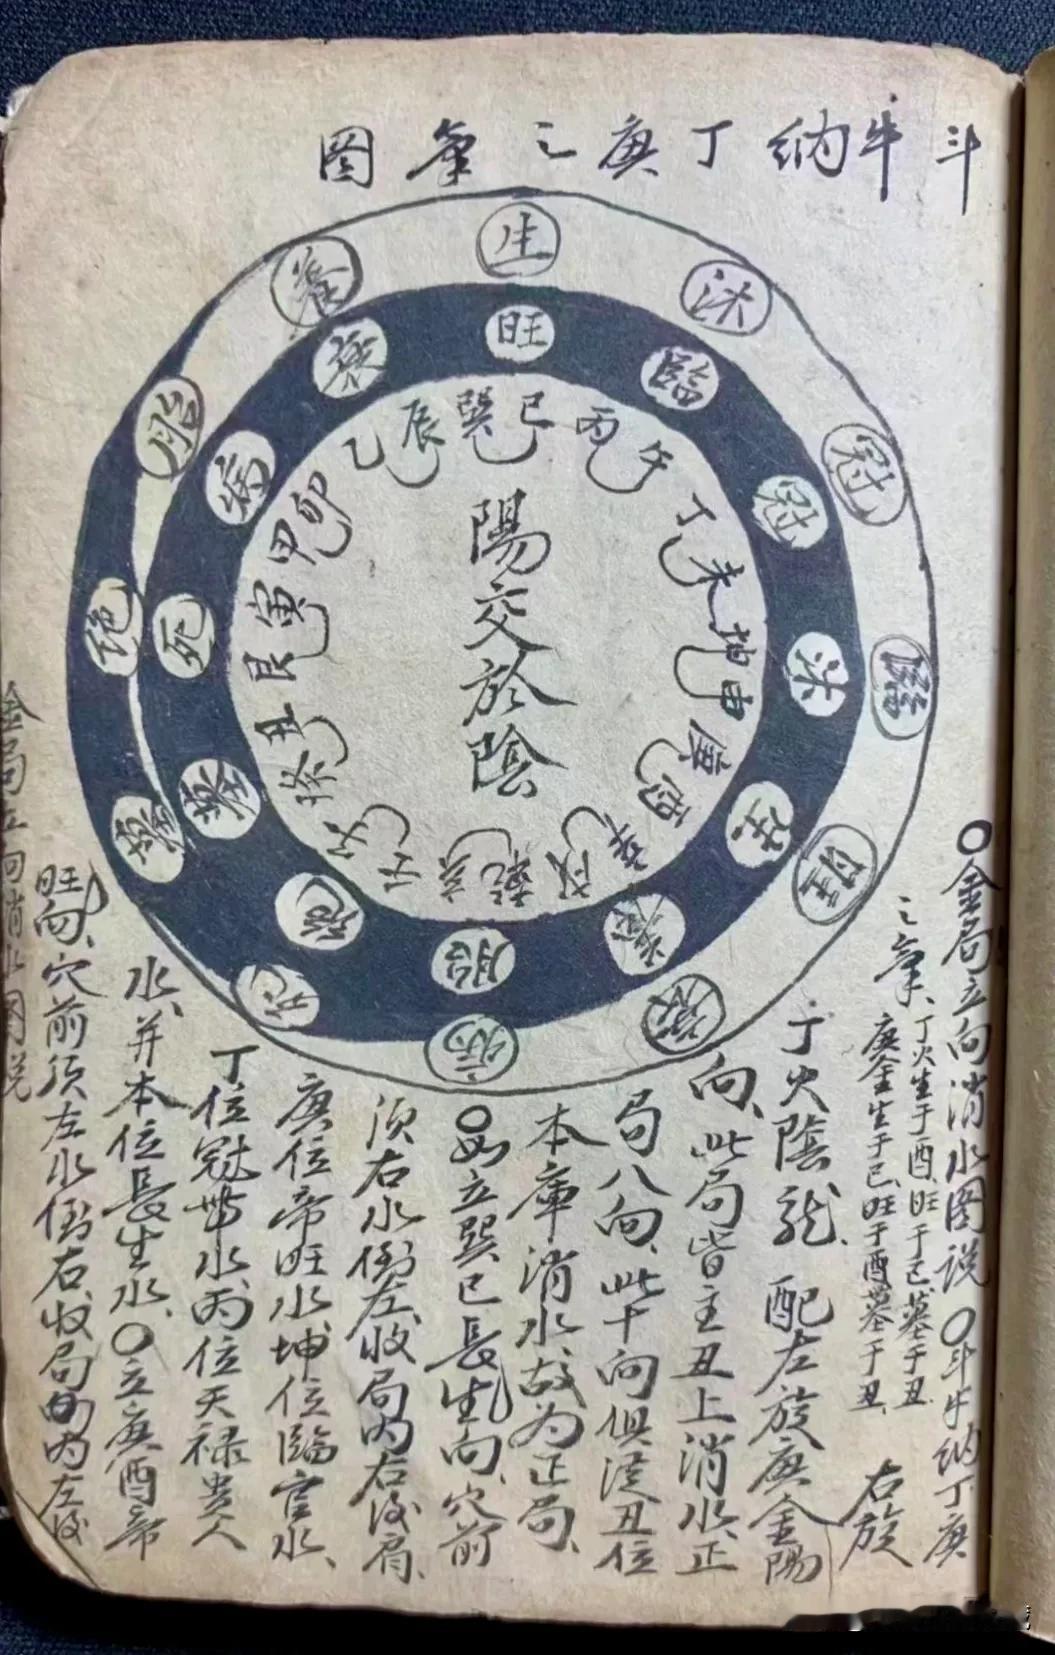 斗牛納丁庚之氣图
生
沐
冠
臨
旺
衰
病
死
墓
绝
胎
養
旺
臨
冠
沐
生
養
胎
绝
墓
死
病
衰
巽巳
丙午
丁未
坤申
庚酉
辛戌
乾亥
壬子
癸丑
艮寅
甲卯
乙辰
陽交於陰
〇金局立向消水图说〇斗牛纳丁庚
之氣、丁火生于酉、旺于巳、墓于丑
庚金生于巳、旺于酉、墓于丑、右旋
丁火陰龍、配左旋庚金陽
向、此局皆主丑上消水、正
局八向、此十向俱従丑位
本庫消水、故为正局、
〇如立巽巳長生向、穴前
须右水倒左、收局内右後肩、
庚位帝旺水、坤位臨官水、
丁位冠帶水、丙位天禄贵人
水、并本位長生水、〇立庚酉帝
旺向、穴前须左水倒右、收局内左後
金局立向消水图说